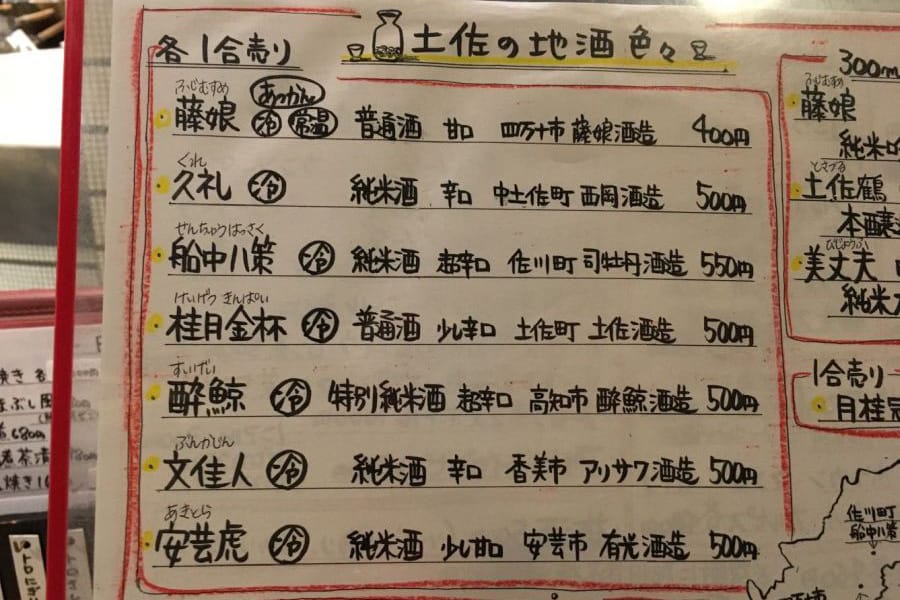 土佐の地酒色々
各1合売り
ふじむすめ あつかん
藤娘 冷 常温 普通酒 甘口 四万十市 藤娘酒造 400円
くれ
久礼 冷 純米酒 辛口 中土佐町 西岡酒造 500円
せんちゅうはっさく
船中八策 冷 純米酒 超辛口 佐川町 司牡丹酒造 550円
けいげつ きんぱい
桂月金杯 冷 普通酒 少し辛口 土佐町 土佐酒造 500円
すいげい
酔鯨 冷 特別純米酒 超辛口 高知市 酔鯨酒造 500円
ぶんかじん
文佳人 冷 純米酒 辛口 香美市 アリサワ酒造 500円
あきとら
安芸虎 冷 純米酒 少し甘口 安芸市 有光酒造 500円
300m
ふじむすめ
藤娘
純米吟
とさづる
土佐鶴
本醸造
びじょうふ
美丈夫
純米
1合売り
月桂冠
佐川町
船中八策
焼き
まぶし
680円
茶漬
焼き
レトロ